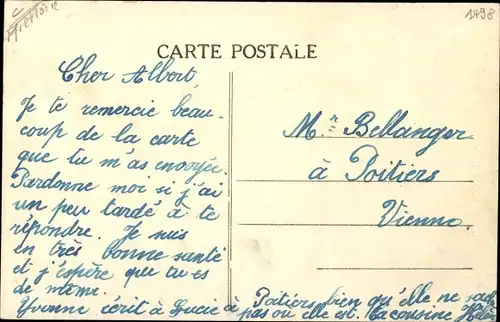 1498
CARTE POSTALE
Cher Albert,
Je te remercie beau-
coup de la carte
que tu m'as envoyée.
Pardonne moi si j'ai
un peu tardé à te
répondre. Je suis
en très bonne santé
et j'espère que tu es
de même.
Yvonne écrit à Lucie à Poitiers bien qu'elle ne
pas où elle est. Ta cousine
Mr Bellanger
à Poitiers
Vienne.